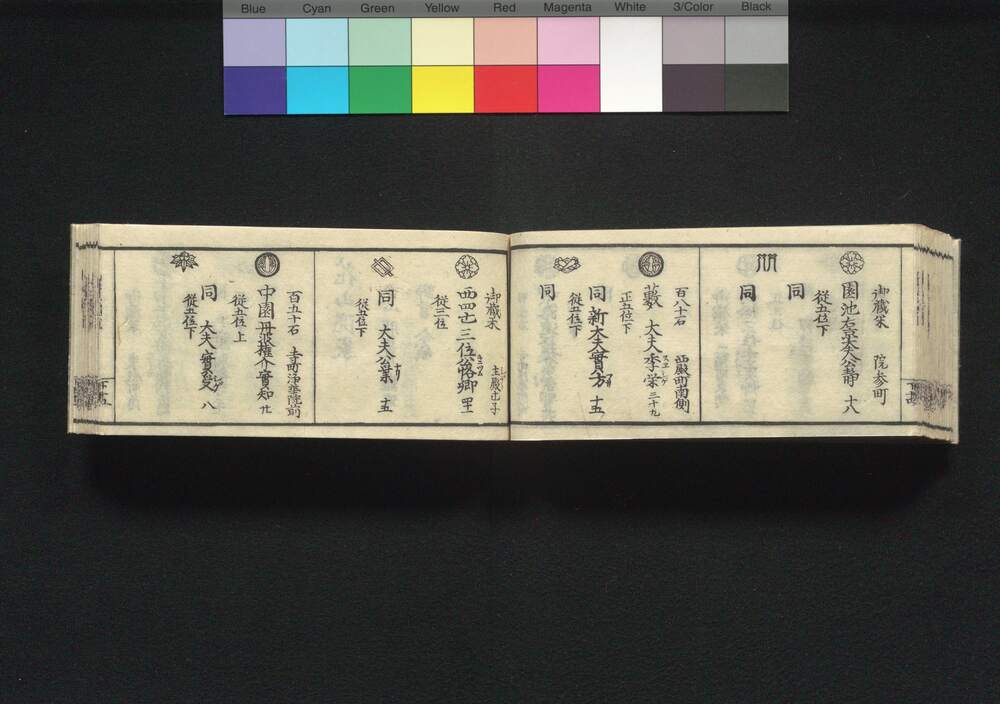 Blue Cyan Green Yellow Red Magenta White 3/Color Black
御蔵米 院参町
園池右京大夫公静 十八
従五位下
同
同
百八十石 西殿町南側
藪 大夫季栄 三十九
スエシゲ
正五位下
同 新大夫實方 十五
従五位下
同
御蔵米
西四辻三位公恪卿
従三位
同 大夫公業 十五
従五位下
百五十石 寺町浄華院前
中園丹波権介實知 廿
従五位上
同 大夫實 八
従五位下